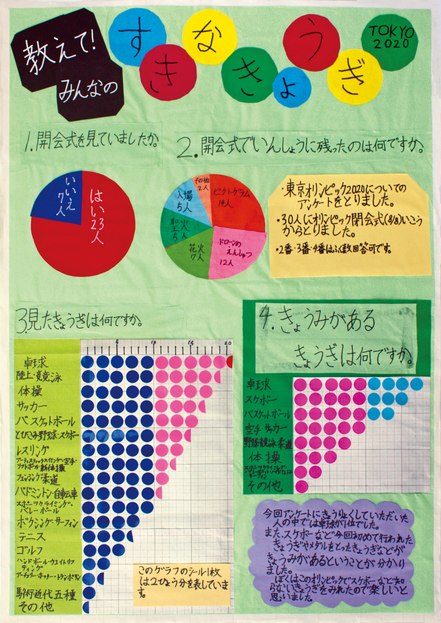 教えて!
みんなの
すきなきょうぎ
TOKYO
2020
1.開会式を見ていましたか。
いいえ
7人
はい23人
2.開会式でいんしょうに残ったのは何ですか。
ピクトグラム
14人
ドローンの
えんしゅつ
12人
花火
7人
入場
5人
その他
2人
・東京オリンピック2020についての
アンケートをとりました。
・30人にオリンピック閉会式(8/8)いこう
からとりました。
・2番・3番・4番はふく数回答可です。
3見たきょうぎは何ですか。
5
10
15
20
卓球
体操
サッカー
バスケットボール
レスリング
バドミントン・自転車
バレーボール
ボクシング・サーフィン
テニス
ゴルフ
馬術・近代五種
その他
このグラフのシール1枚
は2ひょう分を表していま
す。
4.きょうみがある
きょうぎは何ですか。
卓球
スケボー
バスケットボール
空手・サッカー
体操
その他
今回アンケートにきょうりょくしていただいた
人の中では卓球が1位でした。
また、スケボーなど今回初めて行われた
きょうぎやメダルをとったきょうぎなどが
きょうみがあるということが分かり
ました。
ぼくはこのオリンピックでスケボーなど知
らないきょうぎをみれたので楽しいと
思いました。